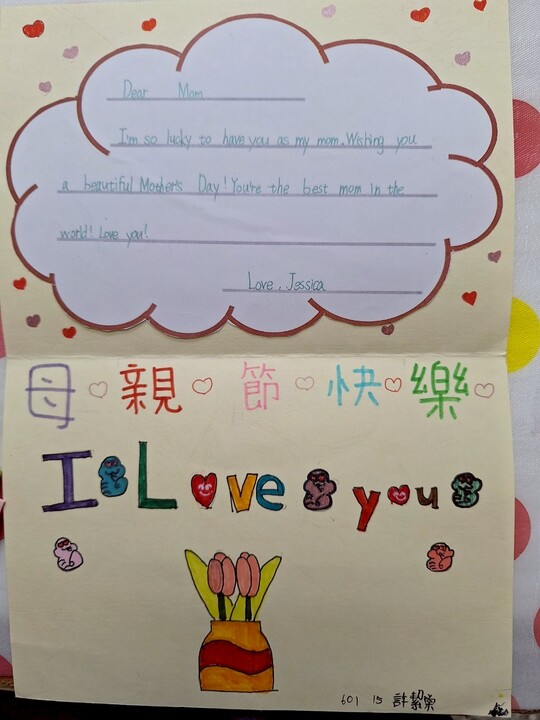 Dear Mom
I'm so lucky to have you as my mom. Wishing you
a beautiful Mother's Day! You're the best mom in the
world! Love you!
Love, Jessica
母親節快樂
I Love you
601 15 許絜崇